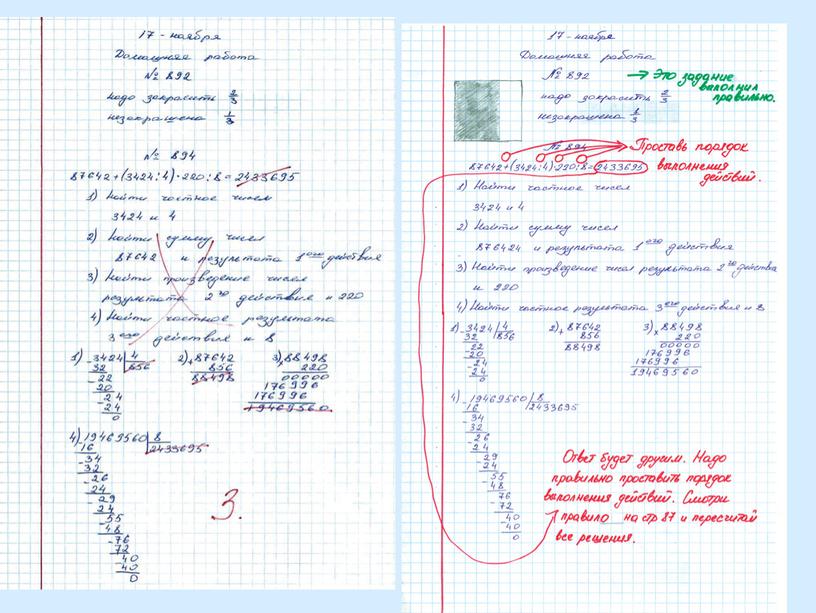 17 - ноября
Домашняя работа
№ 892
надо закрасить 2/3
незакрашена 1/3
№ 894
87642+(3424:4)·220:8=2433695
1) Найти частное чисел
3424 и 4
2) Найти сумму чисел
87642 и результата 1ого действия
3) Найти произведение чисел
результата 2го действия и 220
4) Найти частное результата
3его действия и 8
1) 3424 | 4
32 | 856
22
20
24
24
0
2) + 87642
856
88498
3) × 88498
220
00000
176996
176996
19469560
4) 19469560 | 8
16 | 2433695
34
32
26
24
29
24
55
48
76
72
40
40
0
3.
17 - ноября
Домашняя работа
№ 892
→ Это задание
выполнил
правильно.
надо закрасить 2/3
незакрашена 1/3
№ 894
Проставь порядок
выполнения
действий.
87642+(3424:4)·220:8=2433695
1) Найти частное чисел
3424 и 4
2) Найти сумму чисел
876424 и результата 1ого действия
3) Найти произведение чисел результата 2го действия
и 220
4) Найти частное результата 3его действия и 8
1) 3424 | 4
32 | 856
22
20
24
24
0
2) + 87642
856
88498
3) × 88498
220
00000
176996
176996
19469560
4) 19469560 | 8
16 | 2433695
34
32
26
24
29
24
55
48
76
72
40
40
0
Ответ будет другим. Надо
правильно проставить порядок
выполнения действий. Смотри
правило на стр 87 и пересчитай
все решения.